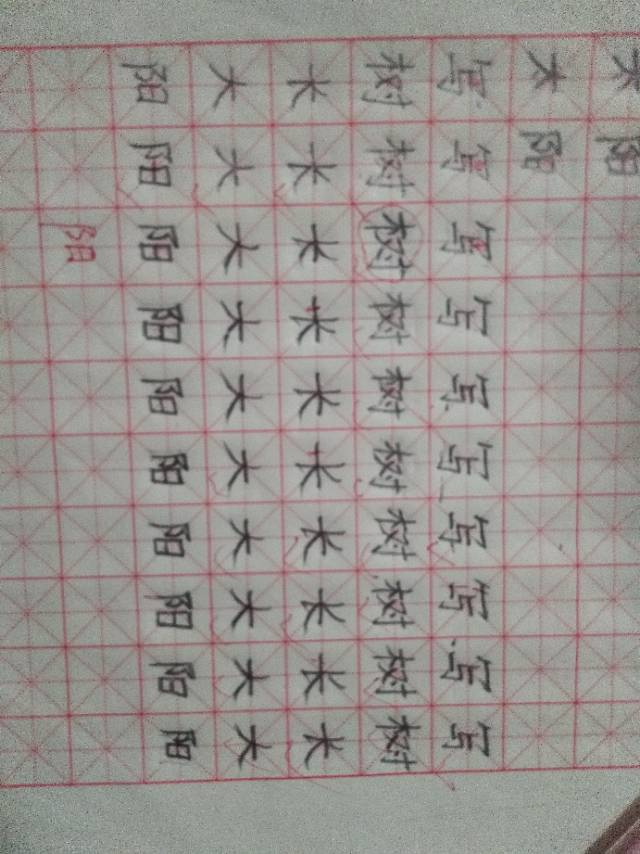 大 阳
大 阳
写 写 写 写 写 写 写 写 写 写
树 树 树 树 树 树 树 树 树 树
长 长 长 长 长 长 长 长 长 长
大 大 大 大 大 大 大 大 大 大
阳 阳 阳 阳 阳 阳 阳 阳 阳 阳
阳